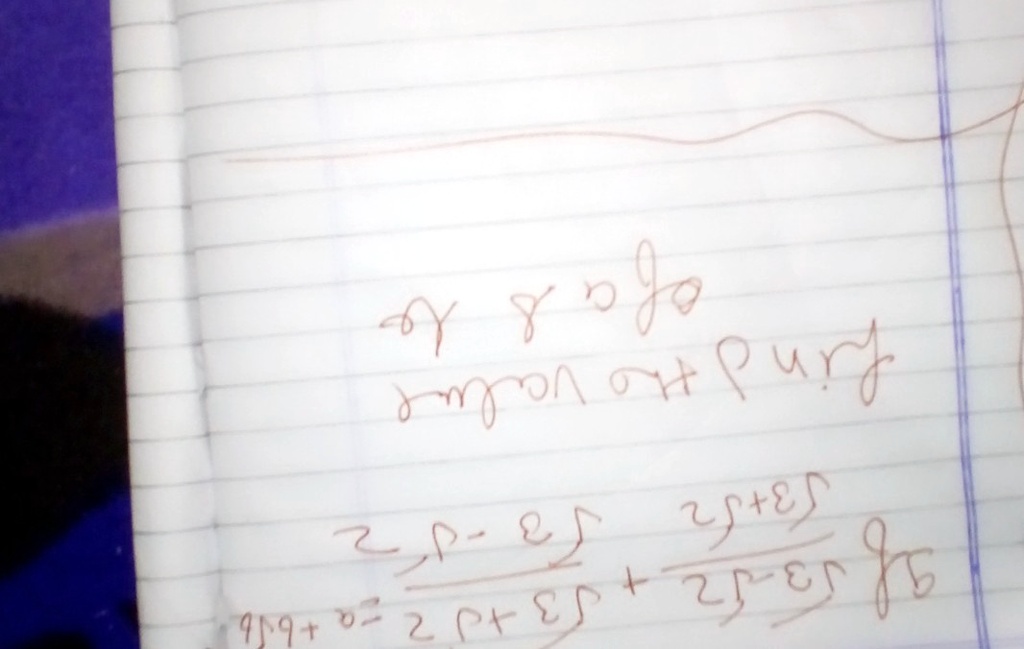 If √3-√2/√3+√2 + √3+√2/√3-√2 = a+b√6
find the value
of a & b